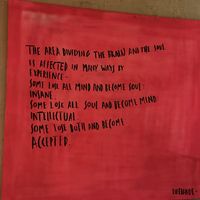 THE AREA DIVIDING THE BRAIN AND THE SOUL
IS AFFECTED IN MANY WAYS BY
EXPERIENCE -
SOME LOSE ALL MIND AND BECOME SOUL:
INSANE.
SOME LOSE ALL SOUL AND BECOME MIND:
INTELLECTUAL.
SOME LOSE BOTH AND BECOME:
ACCEPTED.